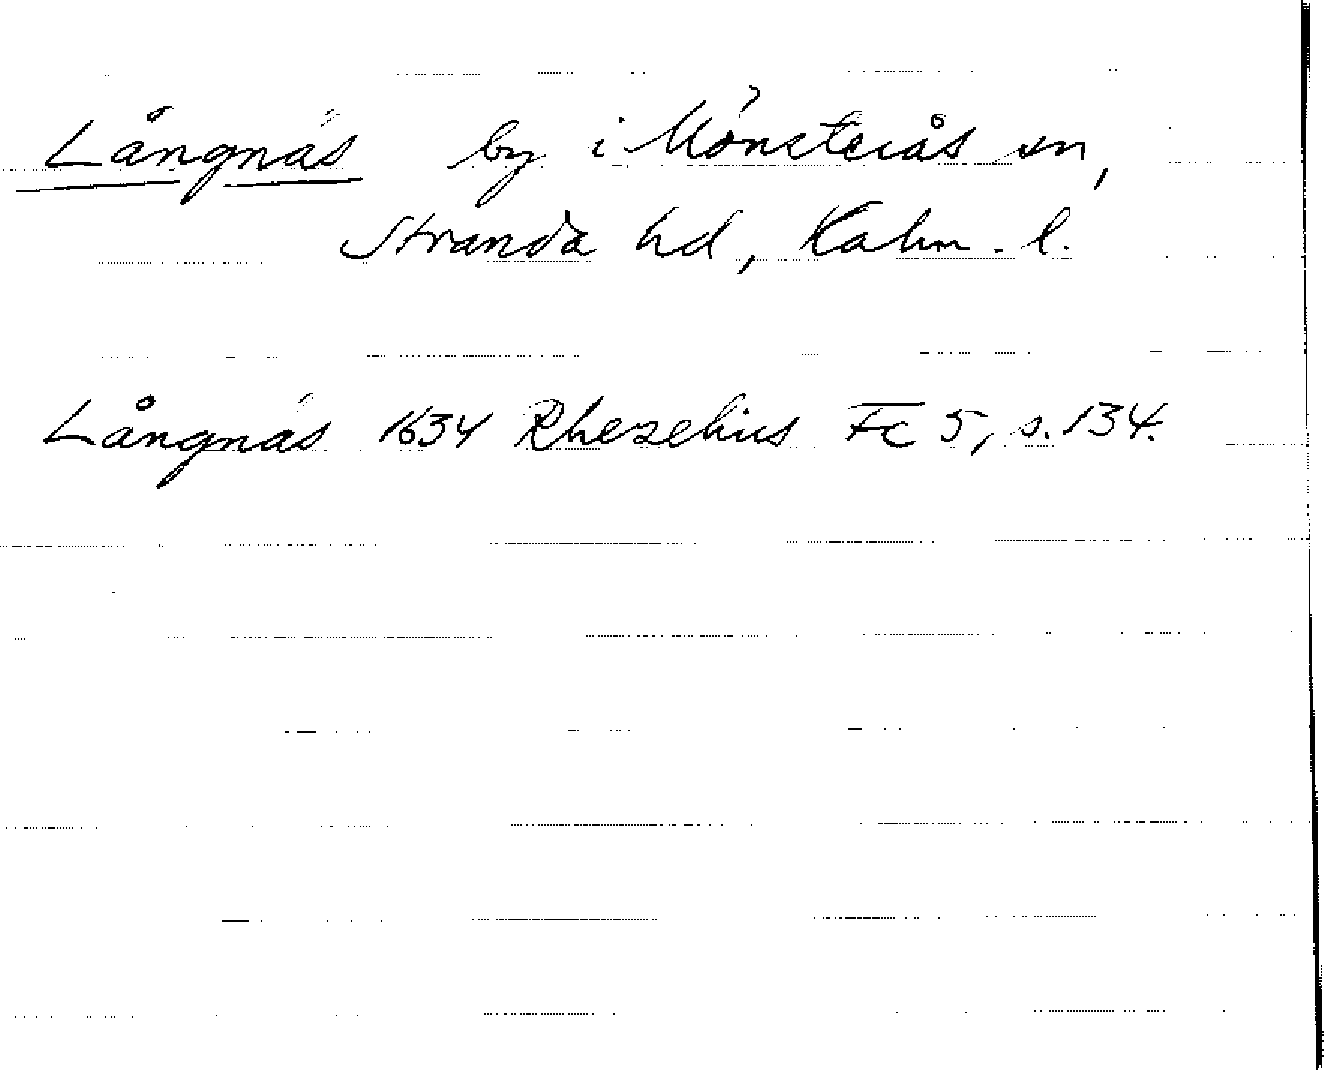 Långnäs by i Mönsterås sn,
Stranda hd, Kalm. l.
Långnäs 1634 Rhezelius Fc 5, s. 134.